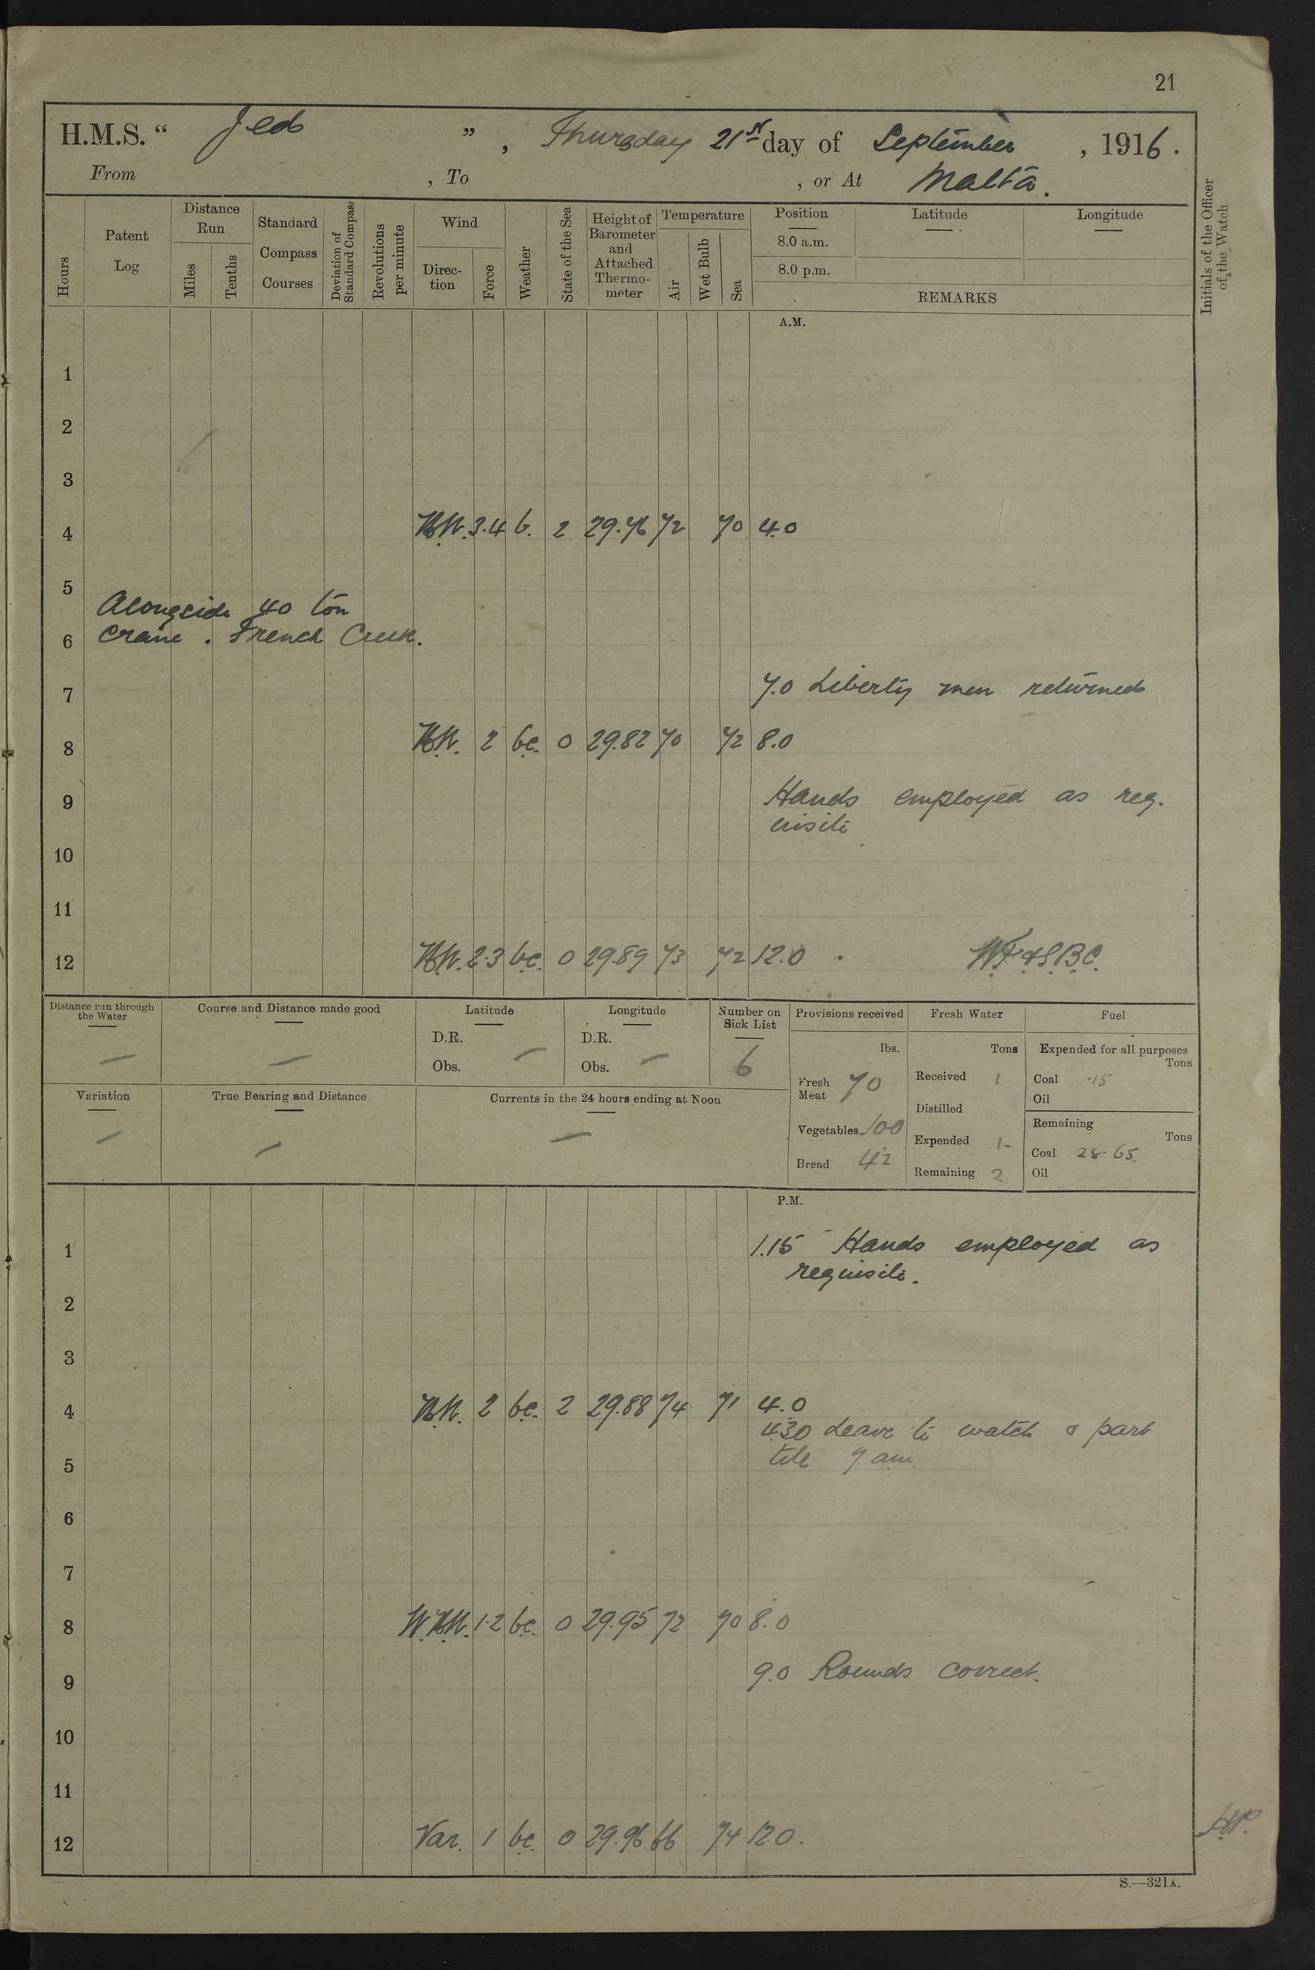 21
H.M.S. “ Jed ” , Thursday 21st day of September , 1916 .
From , To , or At Malta .
Hours
Patent Log
Distance Run
Miles
Tenths
Standard Compass Courses
Deviation of Standard Compass
Revolutions per minute
Wind
Direction
Force
Weather
State of the Sea
Height of Barometer and Attached Thermometer
Temperature
Air
Wet Bulb
Sea
Position Latitude Longitude
8.0 a.m.
8.0 p.m.
REMARKS
Initials of the Officer of the Watch
A.M.
1
2
3
4 N.W. 3.4 b. 2 29.76 72 70 4.0
5
Alongside 40 ton
6 Crane . French Creek.
7 7.0 Liberty men returned
8 N.W. 2 bc. 0 29.82 70 72 8.0
9 Hands employed as req-
uisite
10
11
12 N.W. 2.3 bc. 0 29.89 73 72 12.0
Distance run through the Water
Course and Distance made good
Latitude
D.R.
Obs.
Longitude
D.R.
Obs.
Number on Sick List
6
Provisions received
lbs.
Fresh Meat 70
Vegetables 100
Bread 42
Fresh Water
Tons
Received 1
Distilled
Expended 1
Remaining 2
Fuel
Expended for all purposes
Tons
Coal .15
Oil
Remaining
Tons
Coal 28.65
Oil
Variation
True Bearing and Distance
Currents in the 24 hours ending at Noon
P.M.
1 1.15 Hands employed as
requisite.
2
3
4 N.W. 2 bc. 2 29.88 74 71 4.0
4.30 Leave to watch & part
till 7 am
5
6
7
8 W.N.W. 1.2 bc. 0 29.95 72 70 8.0
9 9.0 Rounds correct.
10
11
12 Var. 1 bc. 0 29.96 66 74 12.0.
S.—321A.